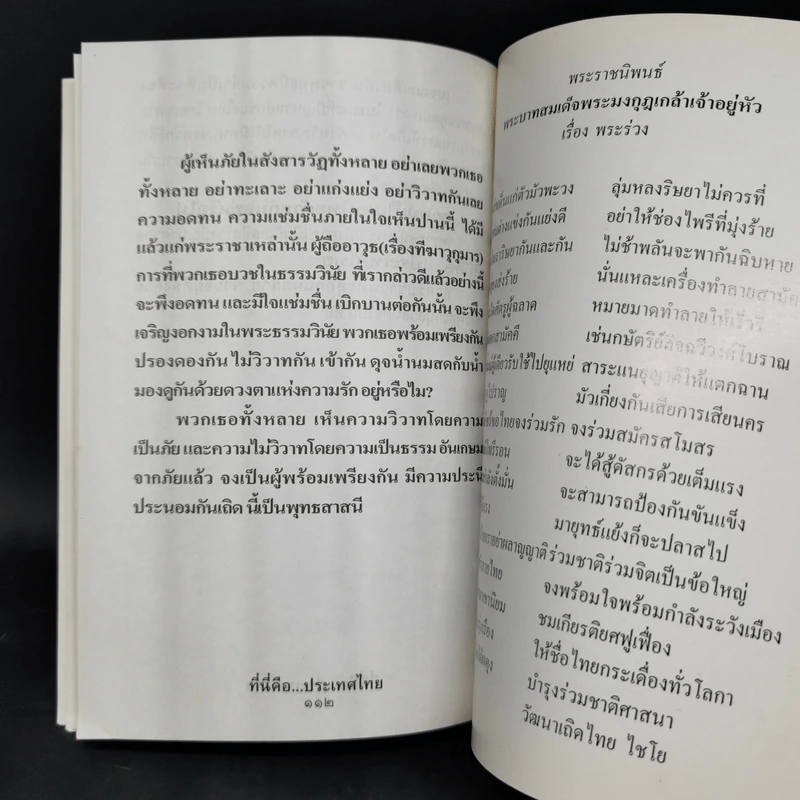 ผู้เห็นภัยในสังสารวัฏทั้งหลาย อย่าเลยพวกเธอ
ทั้งหลาย อย่าทะเลาะ อย่าแก่งแย่ง อย่าวิวาทกันเลย
ความอดทน ความแช่มชื่นภายในใจเห็นปานนี้ ได้มี
แล้วแก่พระราชาเหล่านั้น ผู้ถืออาวุธ(เรื่องทีฆาวุกุมาร)
การที่พวกเธอบวชในธรรมวินัย ที่เรากล่าวดีแล้วอย่างนี้
จะพึงอดทน และมีใจแช่มชื่น เบิกบานต่อกันนั้น จะพึง
เจริญงอกงามในพระธรรมวินัย พวกเธอพร้อมเพรียงกัน
ปรองดองกัน ไม่วิวาทกัน เข้ากัน ดุจน้ำนมสดกับน้ำ
มองดูกันด้วยดวงตาแห่งความรัก อยู่หรือไม?
พวกเธอทั้งหลาย เห็นความวิวาทโดยความ
เป็นภัย และความไม่วิวาทโดยความเป็นธรรม อันเกษม
จากภัยแล้ว จงเป็นผู้พร้อมเพรียงกัน มีความประนี
ประนอมกันเถิด นี้เป็นพุทธสาสนี
ที่นี่คือ...ประเทศไทย
๑๑๒
พระราชนิพนธ์
พระบาทสมเด็จพระมงกุฎเกล้าเจ้าอยู่หัว
เรื่อง พระร่วง
เห็นแก่ตัวมัวพะวง ลุ่มหลงริษยาไม่ควรที่
ต่างแข่งกันแย่งดี อย่าให้ช่องไพรีที่มุ่งร้าย
ริษยากันและกัน ไม่ช้าพลันจะพากันฉิบหาย
นั่นแหละเครื่องทำลายสามัคคี
ศัตรูผู้ฉลาด หมายมาดทำลายให้เร็วรี่
สามัคคี เช่นกษัตริย์ลิจฉวีวงศ์โบราณ
ผู้เดียวรับใช้ไปยุแหย่ สาระแนยุญาติให้แตกฉาน
มัวเกี่ยงกันเสียการเสียนคร
ขอไทยจงร่วมรัก จงร่วมสมัครสโมสร
จะได้สู้ดัสกรด้วยเต็มแรง
ตั้งมั่น จะสามารถป้องกันขันแข็ง
มายุทธ์แย้งก็จะปลาสไป
อย่าผลาญญาติ ร่วมชาติร่วมจิตเป็นข้อใหญ่
จงพร้อมใจพร้อมกำลังระวังเมือง
ชมเกียรติยศฟูเฟื่อง
ให้ชื่อไทยกระเดื่องทั่วโลกา
บำรุงร่วมชาติศาสนา
วัฒนาเถิดไทย ไชโย